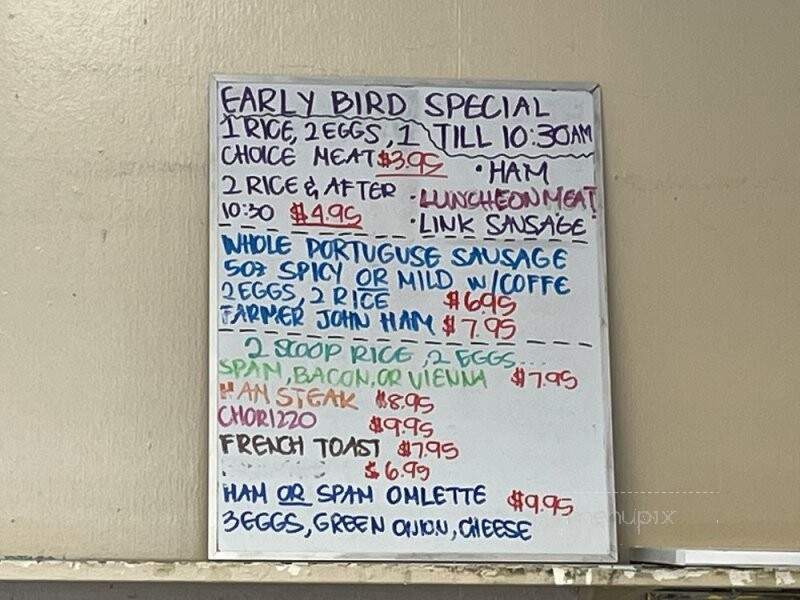 EARLY BIRD SPECIAL
1 RICE, 2 EGGS, 1 TILL 10:30AM
CHOICE MEAT $3.95 • HAM
2 RICE & AFTER • LUNCHEON MEAT
10:30 $4.95 • LINK SAUSAGE
WHOLE PORTUGUSE SAUSAGE
5oz SPICY OR MILD W/COFFE
2 EGGS, 2 RICE $6.95
FARMER JOHN HAM $7.95
2 SCOOP RICE, 2 EGGS....
SPAM, BACON, OR VIENNA $7.95
HAM STEAK $8.95
CHORIZZO $9.95
FRENCH TOAST $7.95
$6.95
HAM OR SPAM OMLETTE $9.95
3 EGGS, GREEN ONION, CHEESE
menupix